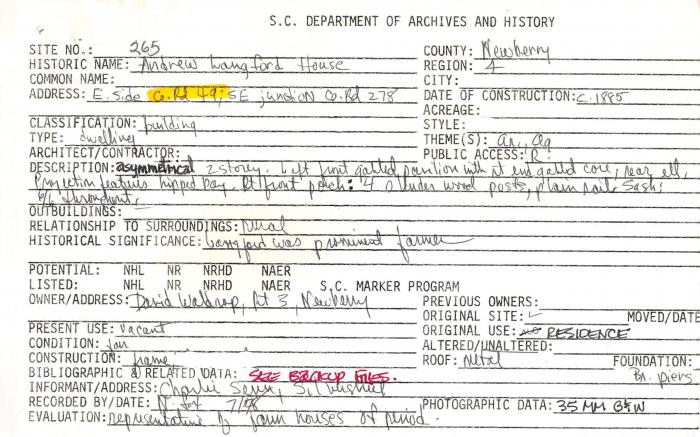 S.C. DEPARTMENT OF ARCHIVES AND HISTORY
SITE NO.: 265 COUNTY: Newberry
HISTORIC NAME: Andrew Langford House REGION: 4
COMMON NAME: CITY:
ADDRESS: E. Side Co. Rd 49; SE junction Co. Rd 278 DATE OF CONSTRUCTION: c. 1885
ACREAGE:
CLASSIFICATION: building STYLE:
TYPE: dwelling THEME(S): Ar, Ag
ARCHITECT/CONTRACTOR: PUBLIC ACCESS: R
DESCRIPTION: asymmetrical 2 storey. Left front gabled pavilion with rt end gabled core, rear ell,
Projection features hipped bay. Rt front porch: 4 slender wood posts, plain rail. Sash:
6/6 throughout.
OUTBUILDINGS:
RELATIONSHIP TO SURROUNDINGS: rural
HISTORICAL SIGNIFICANCE: Langford was prominent farmer
POTENTIAL: NHL NR NRHD NAER
LISTED: NHL NR NRHD NAER S.C. MARKER PROGRAM
OWNER/ADDRESS: David Waldrop, Rt 3, Newberry PREVIOUS OWNERS:
ORIGINAL SITE: MOVED/DATE
PRESENT USE: vacant ORIGINAL USE: RESIDENCE
CONDITION: fair ALTERED/UNALTERED:
CONSTRUCTION: frame ROOF: Metal FOUNDATION:
BIBLIOGRAPHIC & RELATED DATA: SEE BACKUP FILES. Br. Piers
INFORMANT/ADDRESS: Charlie Senn, Silverstreet
RECORDED BY/DATE: N. Fox 7/78 PHOTOGRAPHIC DATA: 35 MM B&W
EVALUATION: Representative of farm houses of period.